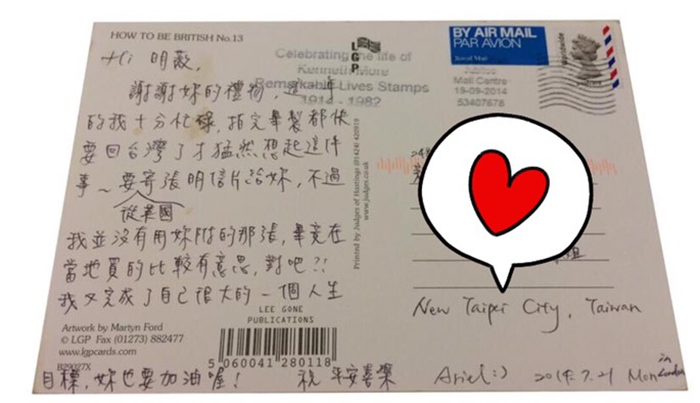 HOW TO BE BRITISH No.13
Hi 明薇,
謝謝妳的禮物, 這一年
的我十分忙碌, 拍完畢製都快
要回台灣了才猛然想起這件
事~要寄張明信片給妳, 不過
從英國
我並沒有用妳附的那張, 畢竟在
當地買的比較有意思, 對吧?!
我又完成了自己很大的一個人生
目標, 妳也要加油喔! 祝 平安喜樂
Ariel:) 2014.7.21 Mon in London
LEE GONE
PUBLICATIONS
Artwork by Martyn Ford
© LGP Fax (01273) 882477
www.lgpcards.com
B29027X
5 060041 280118
Printed by Judges of Hastings (01424) 420919
www.judges.co.uk
LGP
Celebrating the life of
Kenneth More
Remarkable Lives Stamps
1914 - 1982
BY AIR MAIL
PAR AVION
Royal Mail
Worldwide
Mail Centre
19-09-2014
53407678
New Taipei City, Taiwan